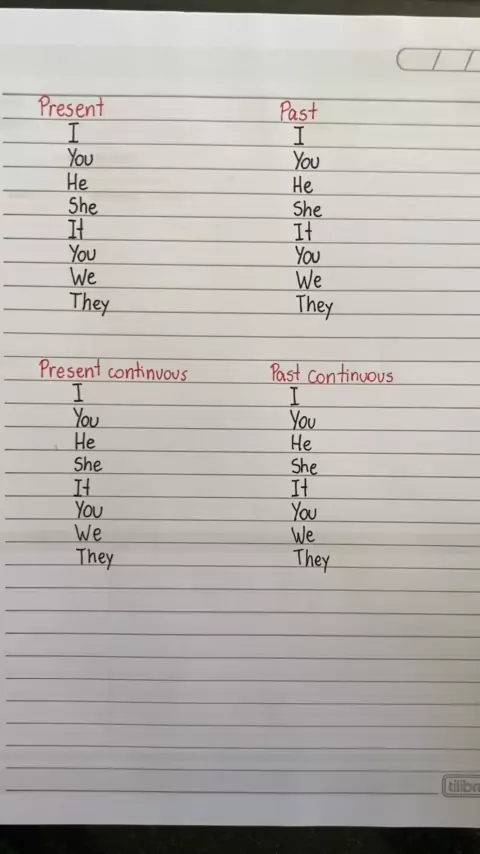 Present
I
You
He
She
It
You
We
They
Past
I
You
He
She
It
You
We
They
Present continuous
I
You
He
She
It
You
We
They
Past continuous
I
You
He
She
It
You
We
They